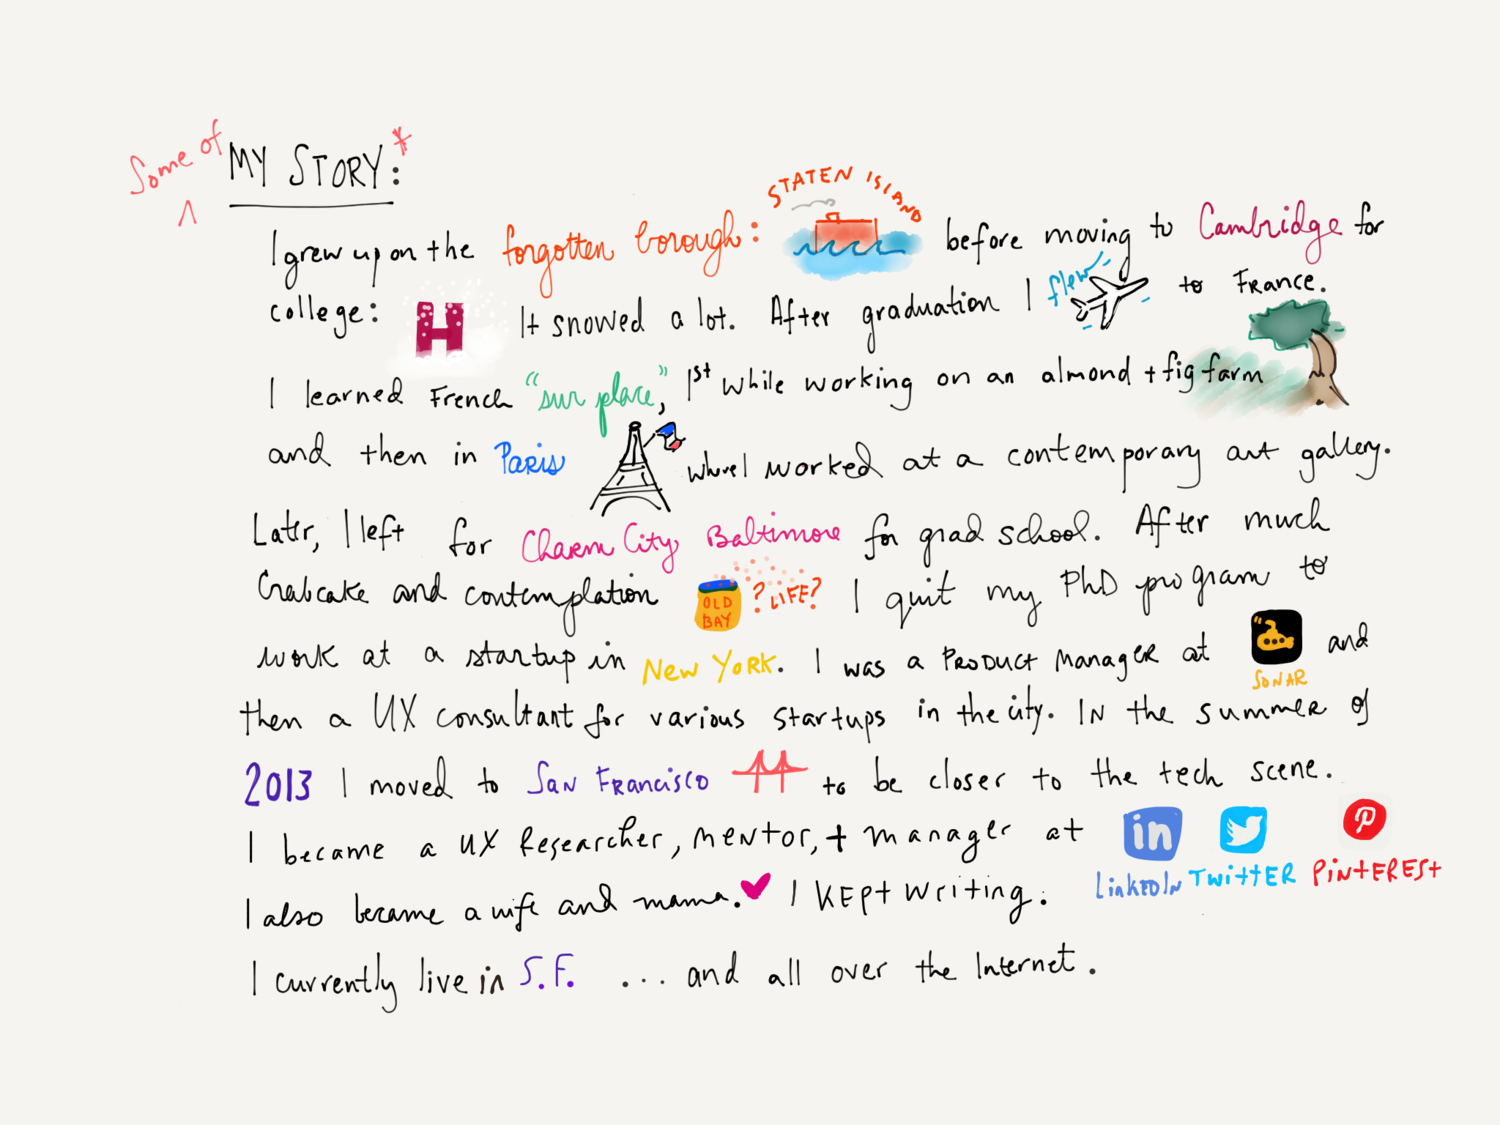 Some of
^ MY STORY:*
I grew up on the forgotten borough: STATEN ISLAND before moving to Cambridge for
college: H It snowed a lot. After graduation I flew to France.
I learned French "sur place", 1st while working on an almond + fig farm
and then in Paris where I worked at a contemporary art gallery.
Later, I left for Charm City, Baltimore for grad school. After much
Crabcake and contemplation OLD BAY ? LIFE? I quit my PhD program to
work at a startup in NEW YORK. I was a PRODUCT MANAGER at SONAR and
then a UX consultant for various startups in the city. IN the summer of
2013 I moved to SAN FRANCISCO to be closer to the tech scene.
I became a UX Researcher, mentor, + manager at in LinkedIn TWITTER P PINTEREST
I also became a wife and mama. I KEPT writing.
I currently live in S.F. ... and all over the Internet.